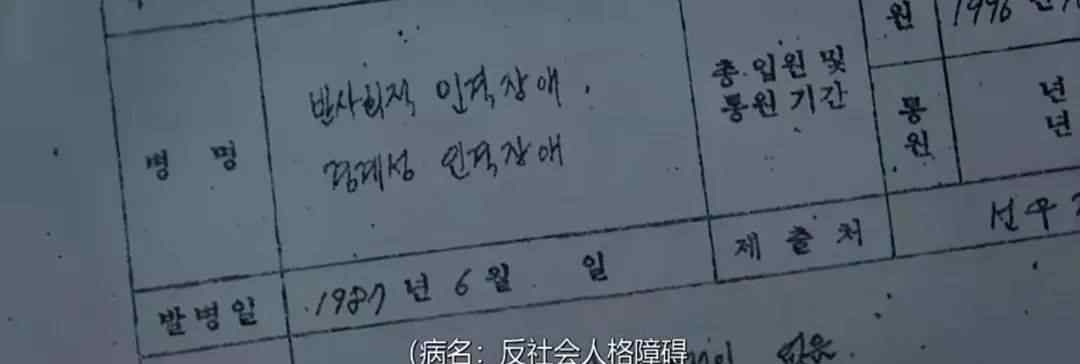 병 명
반사회적 인격장애.
경계성 인격장애
총 입원 및
통원 기간
원
1996
통
원
년
년
발병일
1987 년 6 월 일
제 출 처
선우
(病名：反社会人格障碍